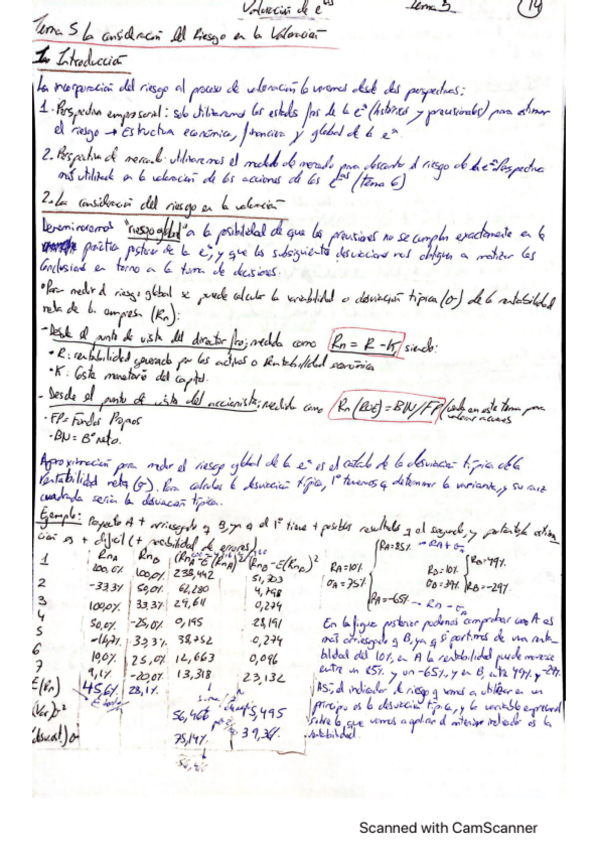 Valoración de e^as Tema 5 (14)
Tema 5 La consideración del Riesgo en la Valoración
1. Introducción
La incorporación del riesgo al proceso de valoración lo veremos desde dos perspectivas:
1. Perspectiva empresarial: solo utilizaremos los estados de la e^a (históricos y previsionales) para estimar
el riesgo → Estructura económica, financiera y global de la e^a.
2. Perspectiva de mercado: utilizaremos el modelo de mercado para descontar el riesgo de la e^a. Perspectiva
más utilizada en la valoración de las acciones de las e^as (tema 6)
2. La consideración del riesgo en la valoración
Denominaremos "riesgo global" a la posibilidad de que las previsiones no se cumplan exactamente en la
práctica posterior de la e^a, y que las subsiguientes desviaciones nos obliguen a matizar las
conclusiones en torno a la toma de decisiones.
• Para medir el riesgo global se puede calcular la variabilidad o desviación típica (σ) de la rentabilidad
neta de la empresa (Rn):
- Desde el punto de vista del director; medida como Rn = R - K siendo:
• R: rentabilidad generada por los activos o Rentabilidad económica
• K: Coste monetario del capital.
- Desde el punto de vista del accionista; medida como Rn (ROE) = BN/FP (usada en este tema para
valorar acciones
- FP = Fondos Propios
- BN = Bº neto.
Aproximación para medir el riesgo global de la e^a es el cálculo de la desviación típica de la
rentabilidad neta (σ). Para calcular la desviación típica, 1º tenemos q determinar la varianza, y su raíz
cuadrada sería la desviación típica.
Ejemplo: Proyecto A + arriesgado q B, ya q el 1º tiene + posibles resultados q el segundo, y por tanto
es + difícil (+ posibilidad de errores)
RnA RnB (RnA - E(RnA))^2 (RnB - E(RnB))^2
1 200,0% 100,0% 238,442 51,703
2 -33,3% 50,0% 62,280 4,798
3 100,0% 33,3% 29,611 0,274
4 50,0% -25,0% 0,195 28,191
5 -16,7% 33,3% 38,752 0,274
6 10,0% 25,0% 12,663 0,096
7 9,1% -20,0% 13,318 23,132
E(Rn) 45,6% 28,1%
(Var) σ^2 56,466 15,495
σ 75,14% 39,36%
RA = 10%
σA = 75%
RA = 85% → RA + σA
RA = -65% → Rn - σA
RB = 10%
σB = 39%
RB = 49%
RB = -29%
En la figura posterior podemos comprobar como A es
más arriesgado q B, ya q si partimos de una renta-
bilidad del 10%, en A la rentabilidad puede moverse
entre un 85% y un -65%, y en B, entre 49% y -29%
Así, el indicador de riesgo q vamos a utilizar en un
principio es la desviación típica, y la variable empresarial
sobre la que vamos a aplicar el anterior indicador es la
rentabilidad.
Scanned with CamScanner